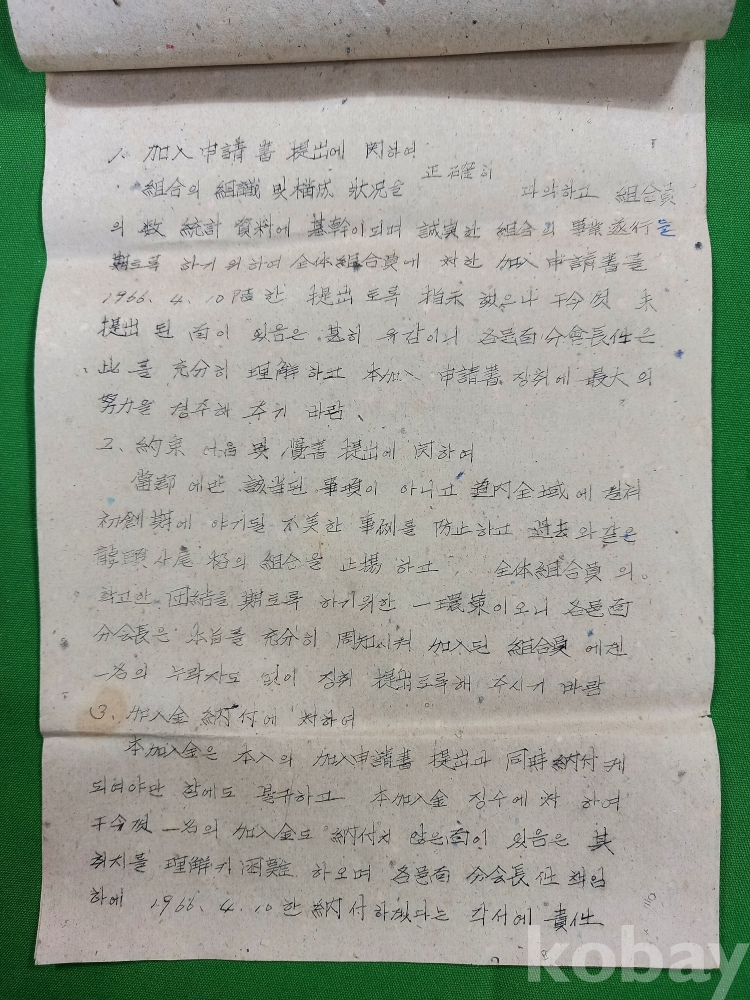 1. 加入申請書 提出에 関하여
正確히
組合의 組織 및 構成 狀況을 파악하고 組合員
의 数 統計 資料에 基幹이 되며 誠実한 組合의 事業遂行을
期토록 하기 위하여 全体組合員에 対한 加入申請書를
1966. 4. 10 限 提出토록 指示 했으나 于今껏 未
提出된 面이 있음은 甚히 유감이니 各邑面分會長任은
此를 充分히 理解하고 本加入 申請書 징취에 最大의
努力을 경주해 주기 바람.
2. 約束어음 및 覺書 提出에 関하여
當郡에만 該当된 事項이 아니고 道内全域에 걸쳐
初創期에 야기될 不美한 事例를 防止하고 過去와 같은
龍頭사尾 格의 組合을 止揚하고 全体組合員의
확고한 団結을 期토록 하기 위한 一環策이오니 各邑面
分会長은 本旨를 充分히 周知시켜 加入된 組合員에겐
一名의 누락자도 없이 징취 提出토록 해 주시기 바람
3. 加入金 納付에 対하여
本加入金은 本人의 加入申請書 提出과 同時 納付케
되여야만 함에도 불구하고 本加入金 징수에 対하여
于今껏 一名의 加入金도 納付치 않은 面이 있음은 其
취지를 理解키 困難하오며 各邑面 分会長任 책임
하에 1966. 4. 10 한 納付하겠다는 각서에 責任
kobay